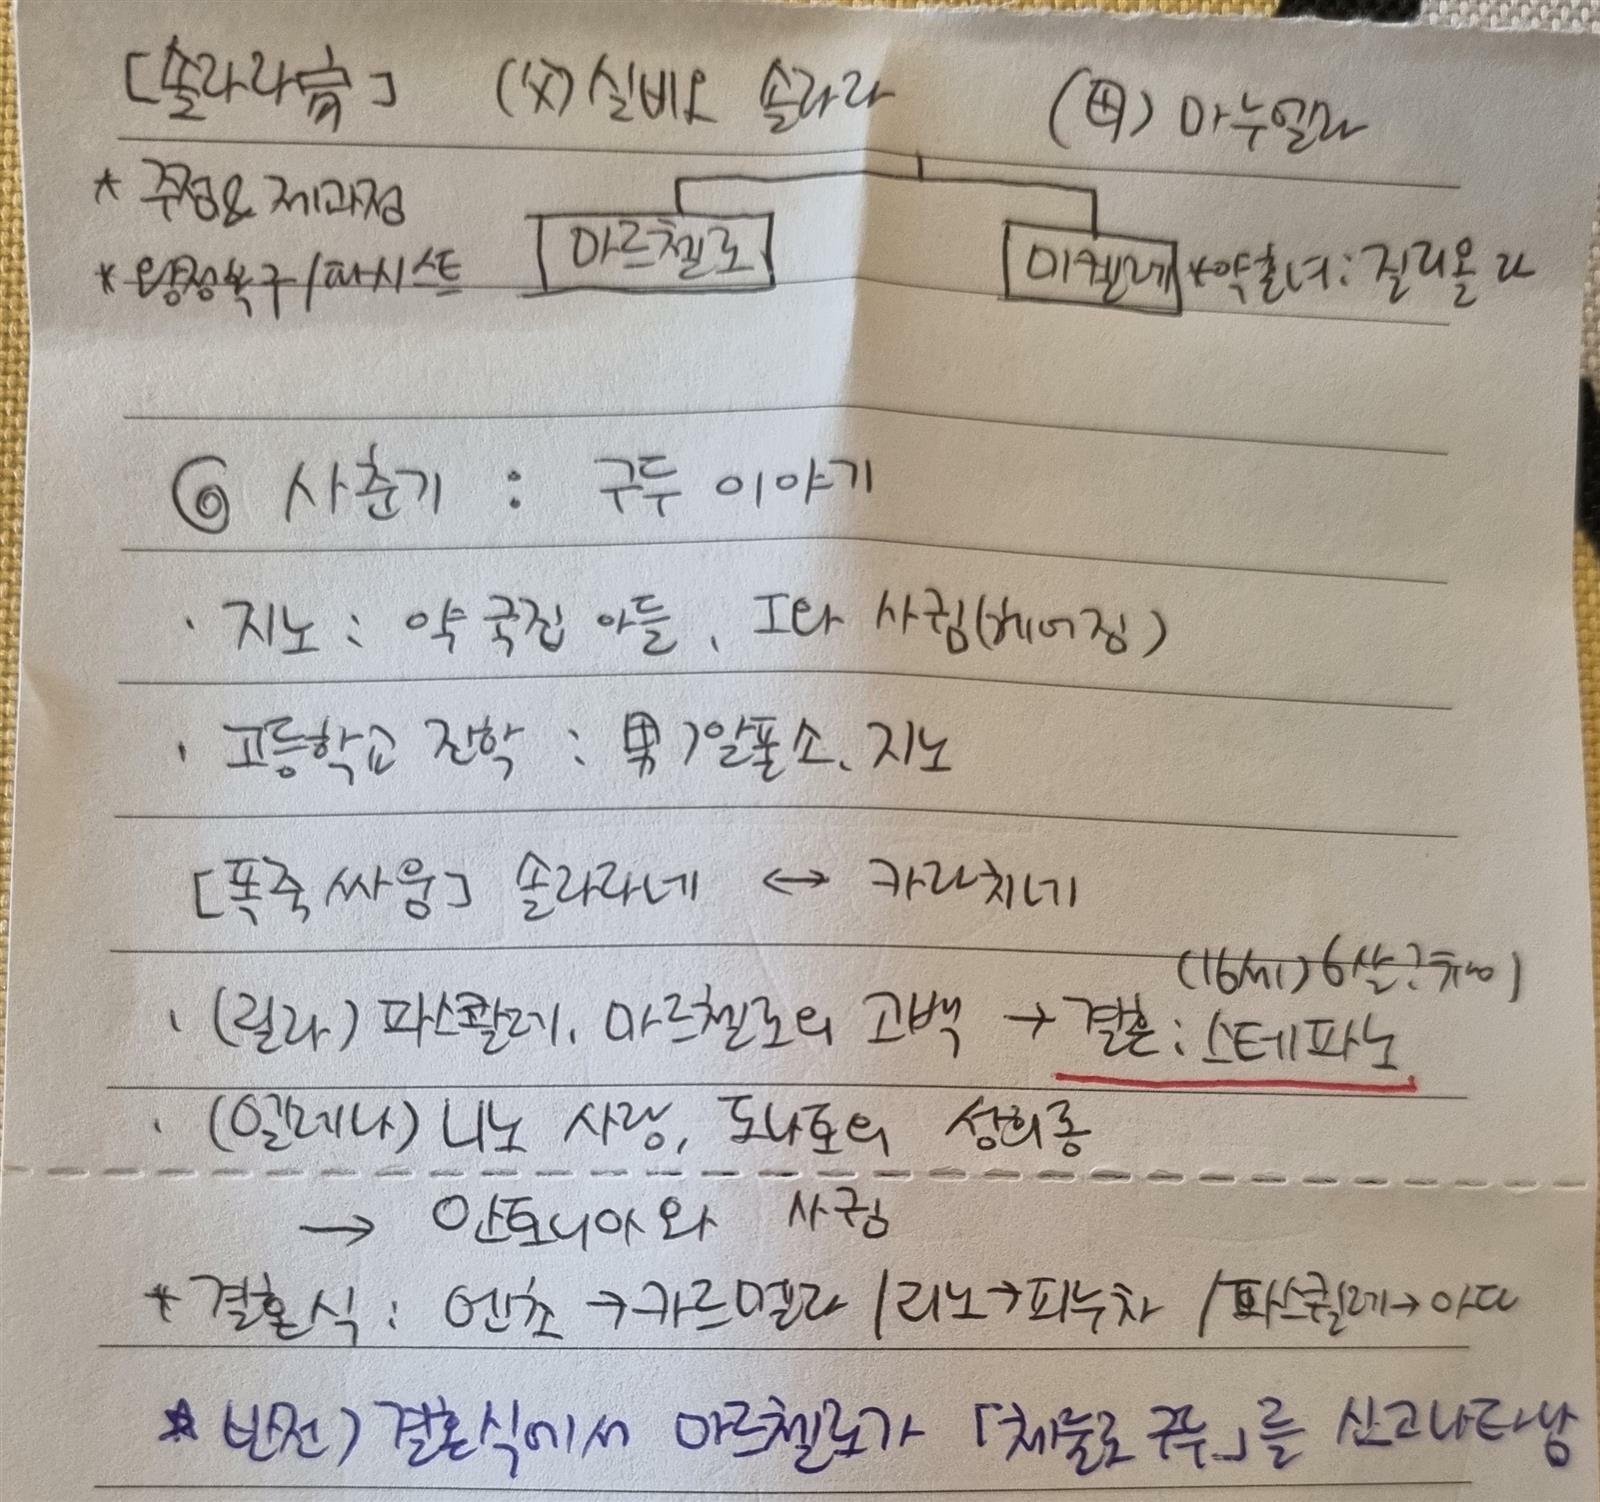 [솔라라家] (父) 실비오 솔라라 (母) 마누엘라
* 주점&제과점
마르첼로 미켈레 *약혼녀: 질리올라
* 왕정복구/파시스트
◎ 사춘기 : 구두 이야기
· 지노 : 약국집 아들, I와 사귐(헤어짐)
· 고등학교 진학 : 男)알폰소, 지노
[폭죽싸움] 솔라라네 ↔ 카라치네
(16세)6살
· (릴라) 파스콸레, 마르첼로의 고백 → 결혼 : 스테파노
· (엘레나) 니노 사랑, 도나토의 성희롱
→ 안토니아와 사귐
* 결혼식 : 엔초→카르멜라/리노→피누차/파스퀄레→아다
* 반전) 결혼식에서 마르첼로가 「체룰로 구두」를 신고나타남